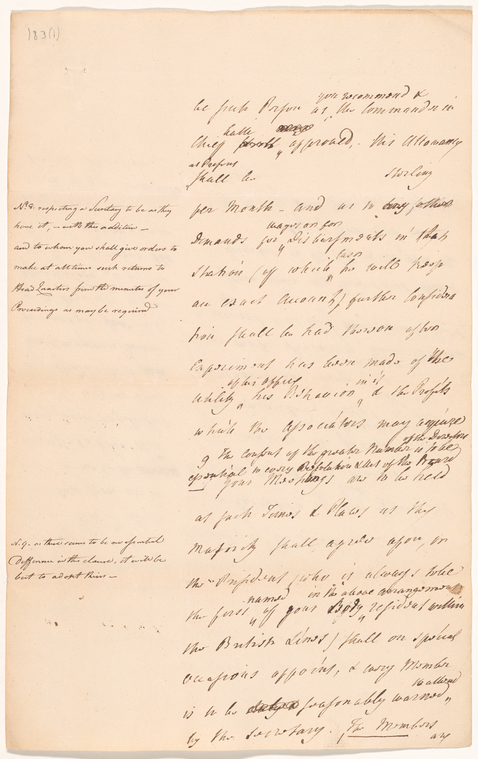 183(1)
you recommend &
be such Person as the Commander in
hath
Chief approved. His Allowance
at Present
shall be Sterling
per Month – and as to any further
wages or for
Demands for Disbursements in that
Station (of which he will keep
an exact Account) further Considera
tion shall be had thereon after
Experiment has been made of the
of his office in it
Utility his Behavior & the Profits
which the Associators may acquire
9 the consent of the greater Number of the Directors is to be
essential in every Resolution & Act of the Board
your Meetings are to be held
at such Times & Places as the
Majority shall agree upon, or
the President (who is always to be
named in the above arrangement
the first of your Body resident within
the British Lines) shall on special
occasions appoint, & every Member
to attend
is to be seasonably warned
by the Secretary. The Members
are
No. 8. respecting a Secretary to be as they
have it, – with this addition –
and to whom you shall give orders to
make at all times such returns to
Head Quarters from the minutes of your
Proceedings as may be required
N. 9. as there seems to be no essential
Difference in this clause, it will be
best to adopt theirs –